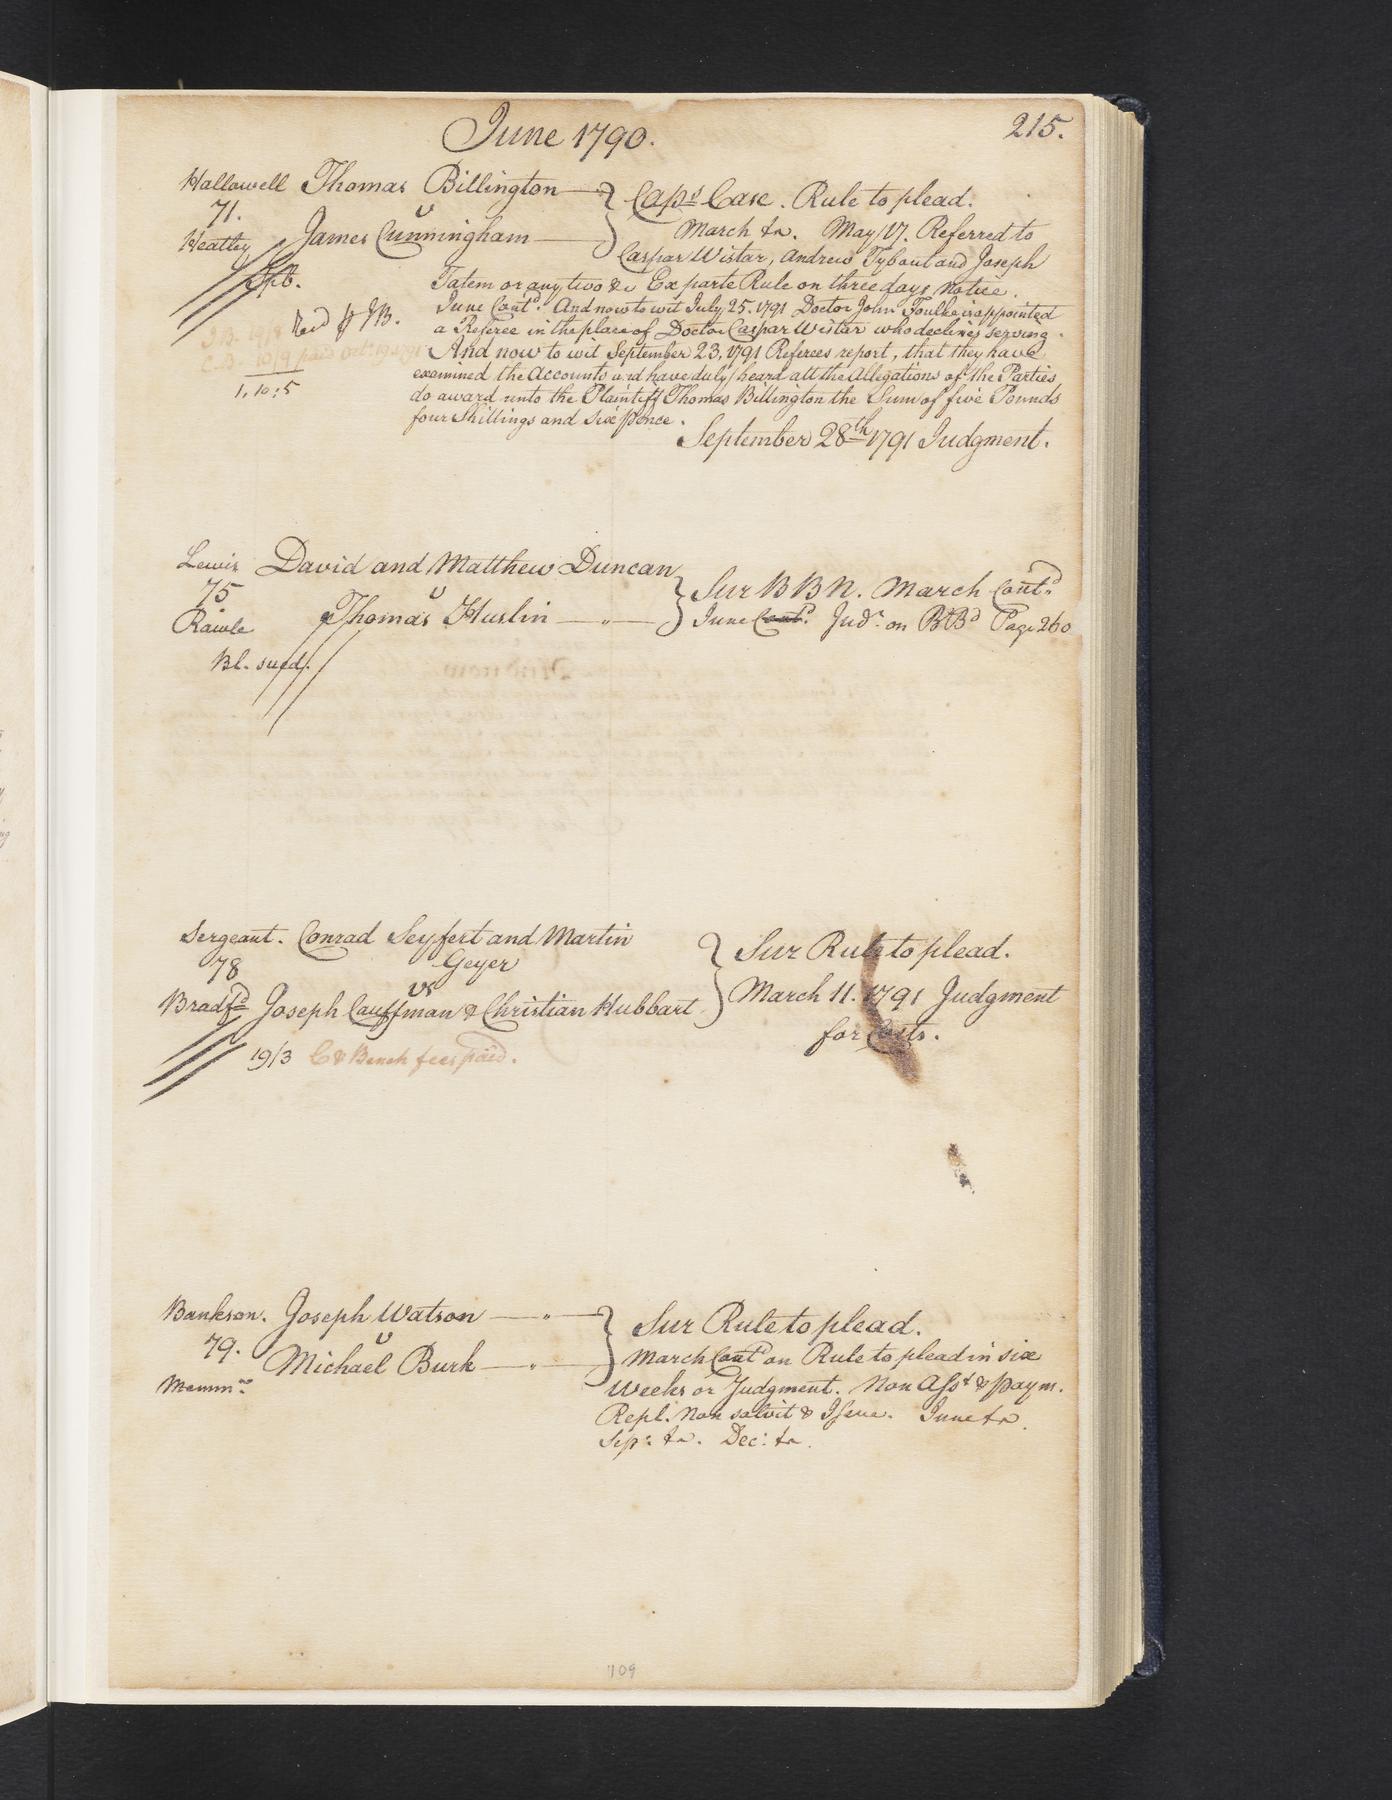 June 1790.
215.
Hallowell Thomas Billington
71.
v
Heatley James Cunningham
Caps Case. Rule to plead.
March ta. May 17. Referred to
Caspar Wistar, Andrew Tybout and Joseph
Tatem or any two &c Ex parte Rule on three days Notice.
June Contd. And now to wit July 25. 1791 Doctor John Foulke is appointed
a Referee in the place of Doctor Caspar Wistar who declines serving.
And now to wit September 23, 1791 Referees report, that they have
examined the Accounts and have duly heard all the Allegations of the Parties
do award unto the Plaintiff Thomas Billington the Sum of five Pounds
four Shillings and Six Pence.
September 28th 1791 Judgment.
C.B. 10/9 paid Octr. 19 1791
1,10:5
Lewis David and Matthew Duncan
75
v
Rawle Thomas Huslin
Bl. sued.
Sur B B N. March Contd.
June Contd. Judt. on B Bd Page 260
Sergeant. Conrad Seyfert and Martin
78
Geyer
vs
Bradfd Joseph Cauffman & Christian Hubbart
19/3 C & Bench fees paid.
Sur Rule to plead.
March 11. 1791 Judgment
for Costs.
Bankson. Joseph Watson
79.
v
Michael Burk
Sur Rule to plead.
March Contd on Rule to plead in six
Weeks or Judgment. Non Asst & paym.
Repl. Non solvit & Issue. June ta.
Sep: ta. Dec: ta.
109